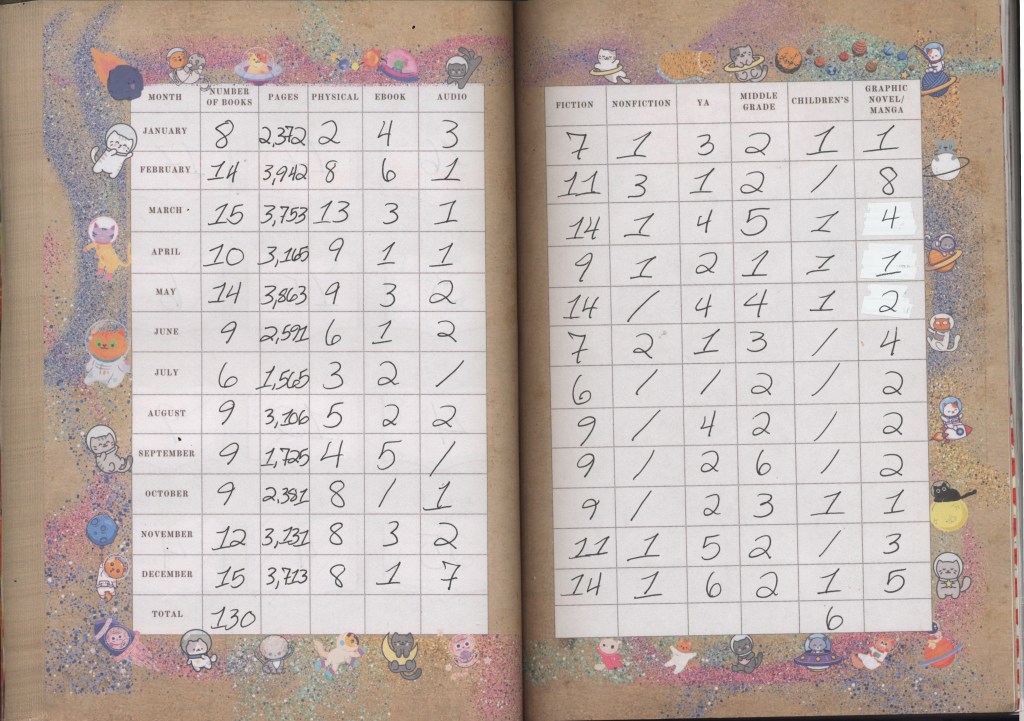 MONTH NUMBER OF BOOKS PAGES PHYSICAL EBOOK AUDIO
JANUARY 8 2,372 2 4 3
FEBRUARY 14 3,942 8 6 1
MARCH 15 3,753 13 3 1
APRIL 10 3,165 9 1 1
MAY 14 3,863 9 3 2
JUNE 9 2,591 6 1 2
JULY 6 1,565 3 2 /
AUGUST 9 3,106 5 2 2
SEPTEMBER 9 1,725 4 5 /
OCTOBER 9 2,381 8 / 1
NOVEMBER 12 3,131 8 3 2
DECEMBER 15 3,713 8 1 7
TOTAL 130
FICTION NONFICTION YA MIDDLE GRADE CHILDREN'S GRAPHIC NOVEL/ MANGA
7 1 3 2 1 1
11 3 1 2 / 8
14 1 4 5 1 4
9 1 2 1 1 1
14 / 4 4 1 2
7 2 1 3 / 4
6 / / 2 / 2
9 / 4 2 / 2
9 / 2 6 / 2
9 / 2 3 1 1
11 1 5 2 / 3
14 1 6 2 1 5
6